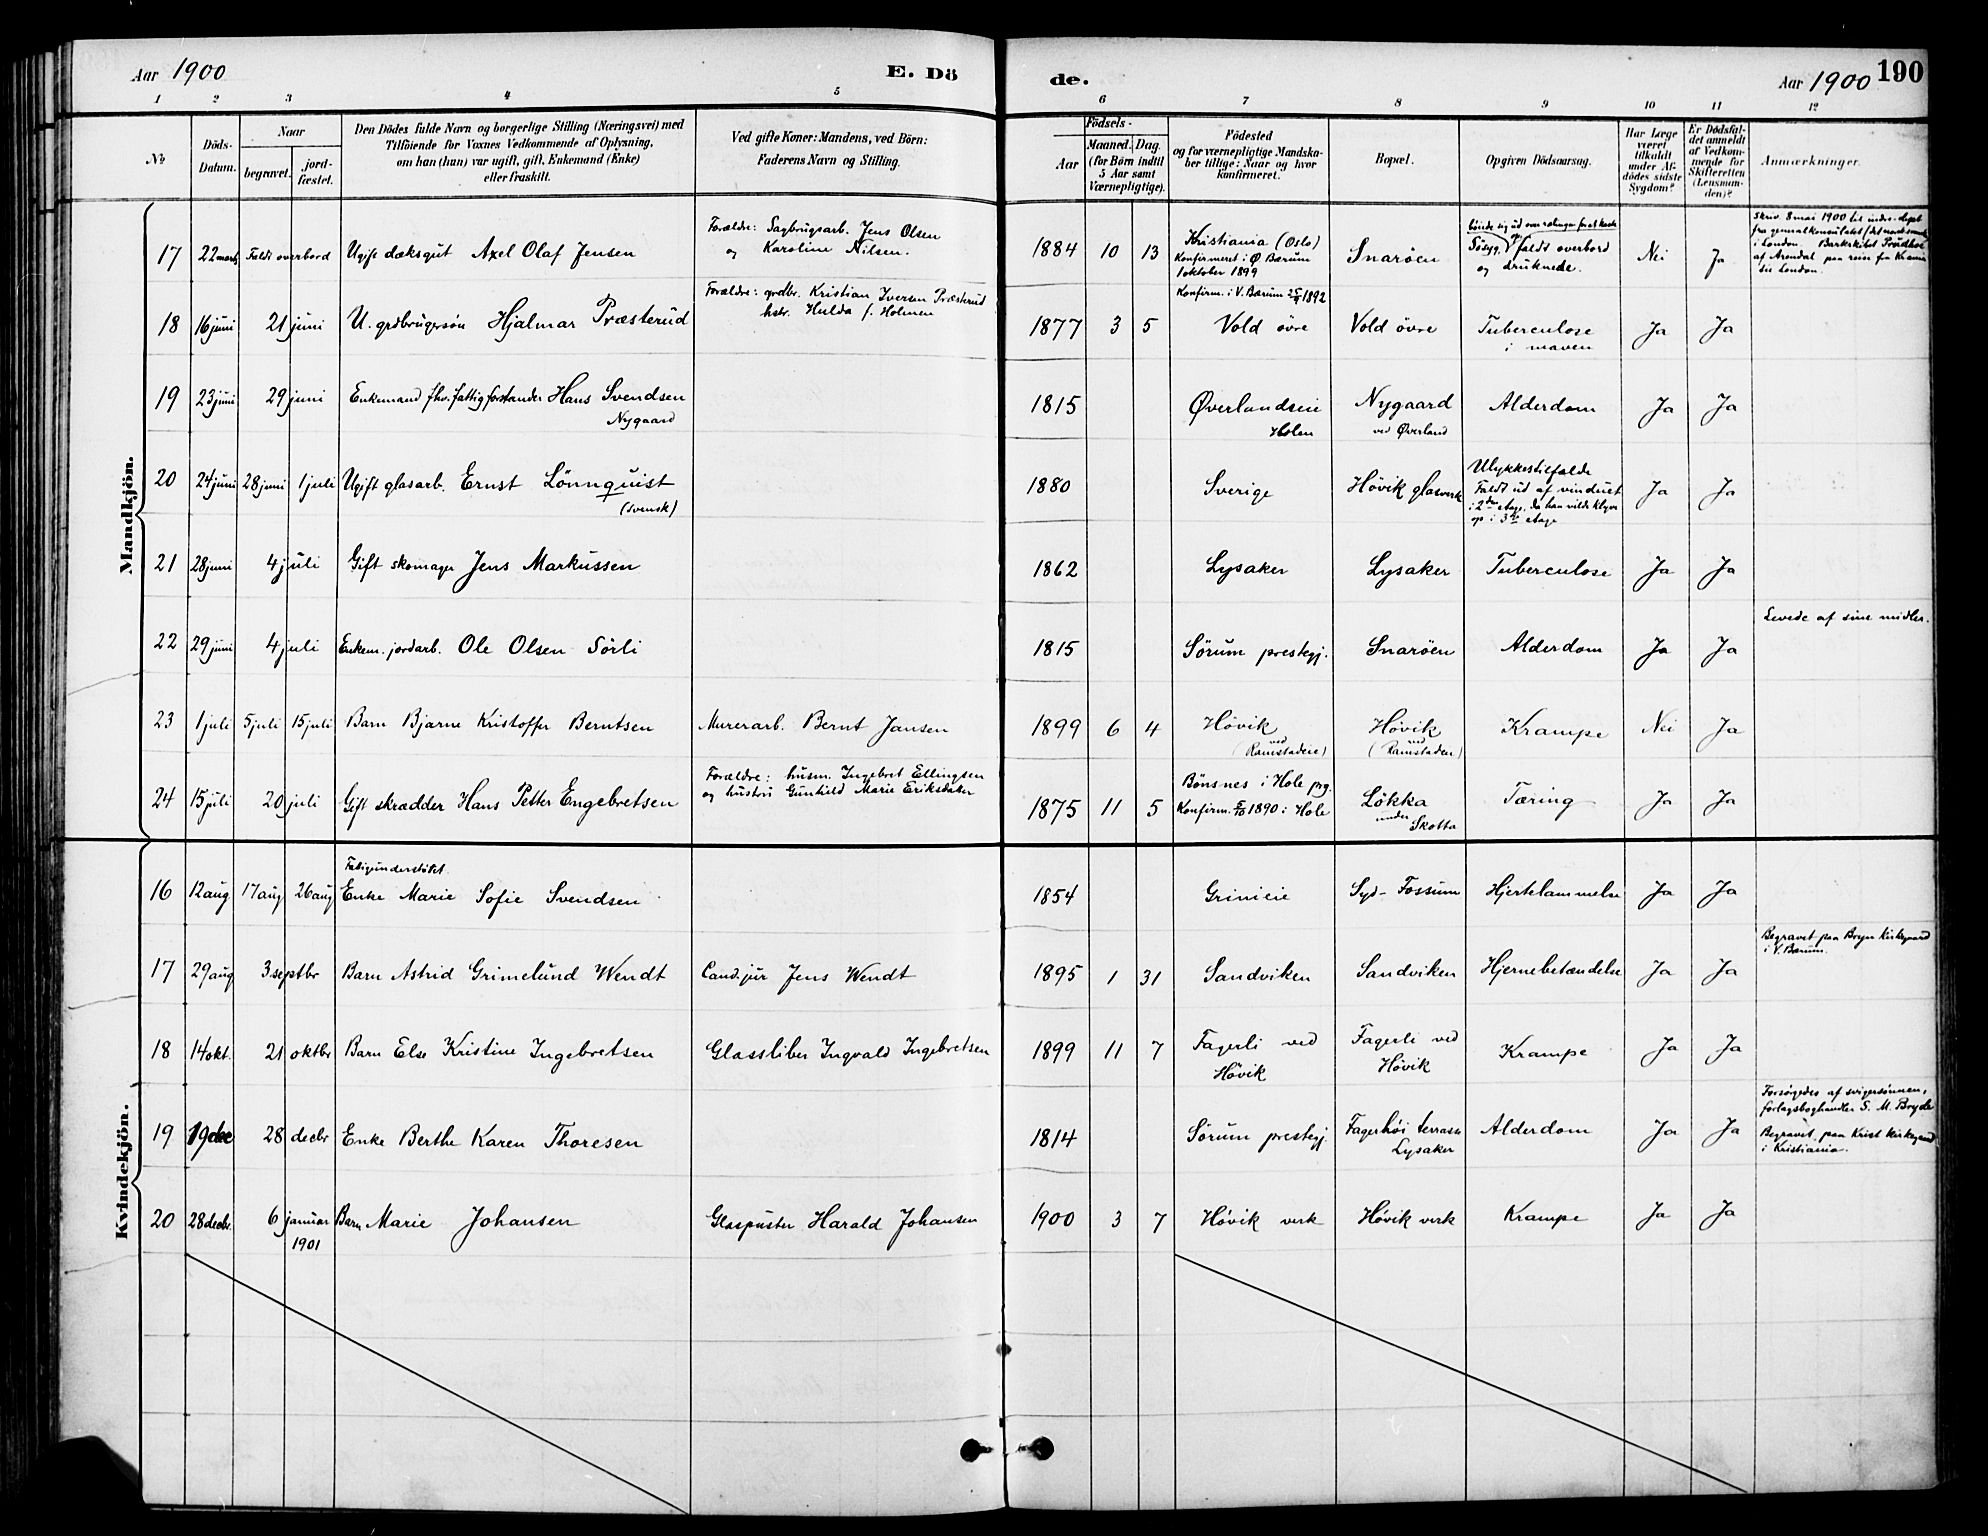 Aar 1900
E. Dö
de.
Aar 1900
190
1 2 3 4 5 6 7 8 9 10 11 12
No
Döds-
Datum.
Naar
begravet.
jord-
fæstet.
Den Dödes fulde Navn og borgerlige Stilling (Næringsvei) med
Tilföiende for Voxnes Vedkommende af Oplysning,
om han (hun) var ugift, gift, Enkemand (Enke)
eller fraskilt.
Ved gifte Koner: Mandens, ved Börn:
Faderens Navn og Stilling.
Födsels-
Aar
Maaned. Dag.
(for Börn indtil
5 Aar samt
Værnepligtige).
Födested
og for værnepligtige Mandska-
ber tillige: Naar og hvor
konfirmeret.
Bopæl.
Opgiven Dödsaarsag.
Har Læge
været
tilkaldt
under Af-
dödes sidste
Sygdom?
Er Dödsfal-
det anmeldt
af Vedkom-
mende for
Skifteretten
(Lensman-
den)?
Anmærkninger.
Mandkjön.
17 22 marts Faldt overbord Ugift dæksgut Axel Olaf Jensen
Forældre: Sagbrugsarb. Jens Olsen
og Karoline Nilsen.
1884 10 13
Kristiania (Oslo)
Konfirmeret i Ø Bærum
1 oktober 1899
Snaröen
Sösyg, faldt overbord
og druknede.
Nei Ja
skriv. 8 mai 1900 til indre-dept
fra generalkonsulatet
i London. Barkskibet
af Arendal paa reise fra
til London.
18 16 juni 21 juni U. grdbrugersön Hjalmar Præsterud
Forældre: grdbr. Kristian Iversen Præsterud
hstr. Hulda f. Holmen
1877 3 5
Konfirm. i V. Bærum 1892
Vold övre Vold övre
Tuberculose
i maven
Ja Ja
19 23 juni 29 juni Enkemand fhv. fattigforstander Hans Svendsen
Nygaard
1815
Øverlandseie
Holen
Nygaard
ved Øverland
Alderdom Ja Ja
20 24 juni 28 juni 1 juli Ugift glasarb. Ernst Lönnquist
(svensk)
1880 Sverige Hövik glasverk
Ulykkestilfælde
Faldt ud af vinduet
i 2den etage, da han vilde klyve
op i 3de etage
Ja Ja
21 28 juni 4 juli Gift skomager Jens Markussen
1862 Lysaker Lysaker Tuberculose Ja Ja
22 29 juni 4 juli Enkem. jordarb. Ole Olsen Sörli
1815 Sörum prestegj. Snaröen Alderdom Ja Ja
Levede af sine midler.
23 1 juli 5 juli 15 juli Barn Bjarne Kristoffer Berntsen
Murerarb. Bernt Jansen
1899 6 4
Hövik
(ved Ramstadeie)
Hövik
(ved Ramstaden)
Krampe Nei Ja
24 15 juli 20 juli Gift skrædder Hans Petter Engebretsen
Forældre: husm. Ingebret Ellingsen
og hustru Gunhild Marie Eriksdatter
1875 11 5
Bönsnes i Hole prg.
Konfirm. 5/10 1890 i Hole
Lökka
under Skotta
Tæring Ja Ja
Kvindekjön.
16 12 aug 17 aug 26 aug
Fattigunderstöttet.
Enke Marie Sofie Svendsen
1854 Grinieie Syd-Fossum Hjertelammelse Ja Ja
17 29 aug 3 septbr Barn Astrid Grimelund Wendt
Cand. jur Jens Wendt
1895 1 31 Sandviken Sandviken Hjernebetændelse Ja Ja
Begravet paa Bryn kirkegaard
i V. Bærum.
18 14 okt. 21 oktbr Barn Else Kristine Ingebretsen
Glassliber Ingvald Ingebretsen
1899 11 7
Fagerli ved
Hövik
Fagerli ved
Hövik
Krampe Ja Ja
19 19 dec 28 decbr Enke Berthe Karen Thoresen
1814 Sörum prestegj.
Fagerhöi terrasse
Lysaker
Alderdom Ja Ja
Forsörgedes af svigersönnen,
forlagsboghandler S. M. Bryde
Begravet paa Krist kirkegaard
i Kristiania.
20 28 decbr. 6 januar
1901
Barn Marie Johansen
Glaspuster Harald Johansen
1900 3 7 Hövik verk Hövik verk Krampe Ja Ja